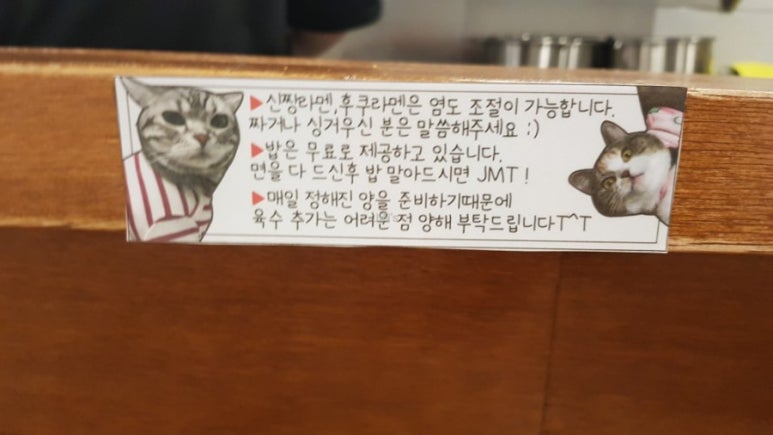 ▶신짱라멘,후쿠라멘은 염도 조절이 가능합니다.
짜거나 싱거우신 분은 말씀해주세요 :)
▶밥은 무료로 제공하고 있습니다.
면을 다 드신후 밥 말아드시면 JMT !
▶매일 정해진 양을 준비하기때문에
육수 추가는 어려운 점 양해 부탁드립니다T^T